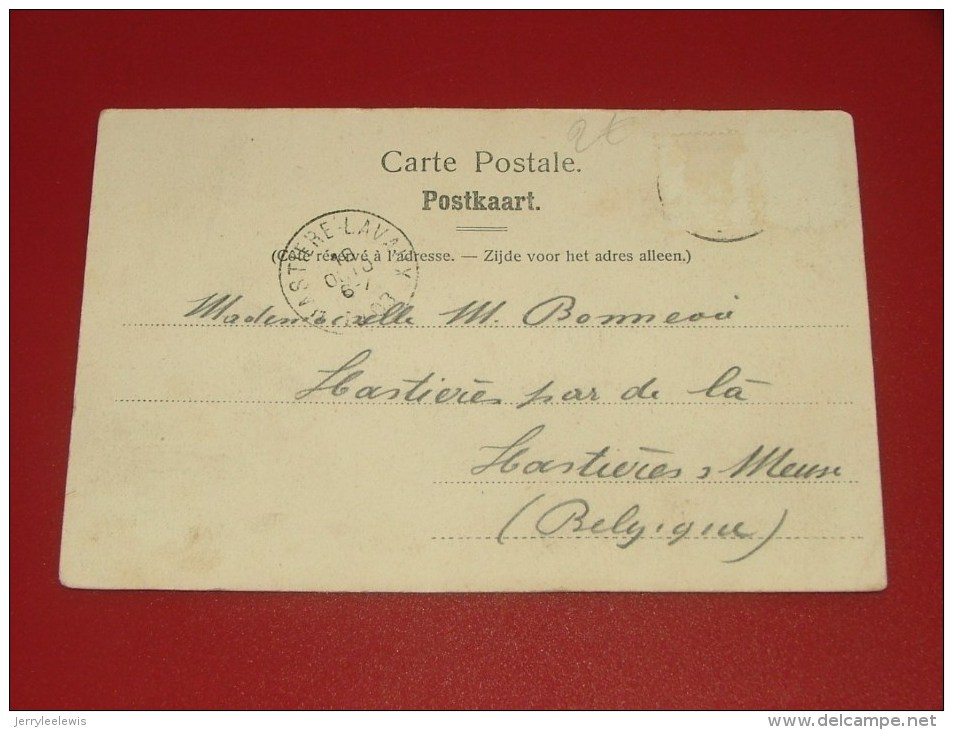 Carte Postale.
Postkaart.
(Côté réservé à l'adresse. — Zijde voor het adres alleen.)
HASTIERE-LAVAUX
Mademoiselle M. Bonnevie
Hastières par de là
Hastières s Meuse
(Belgique)
jerryleelewis
www.delcampe.net